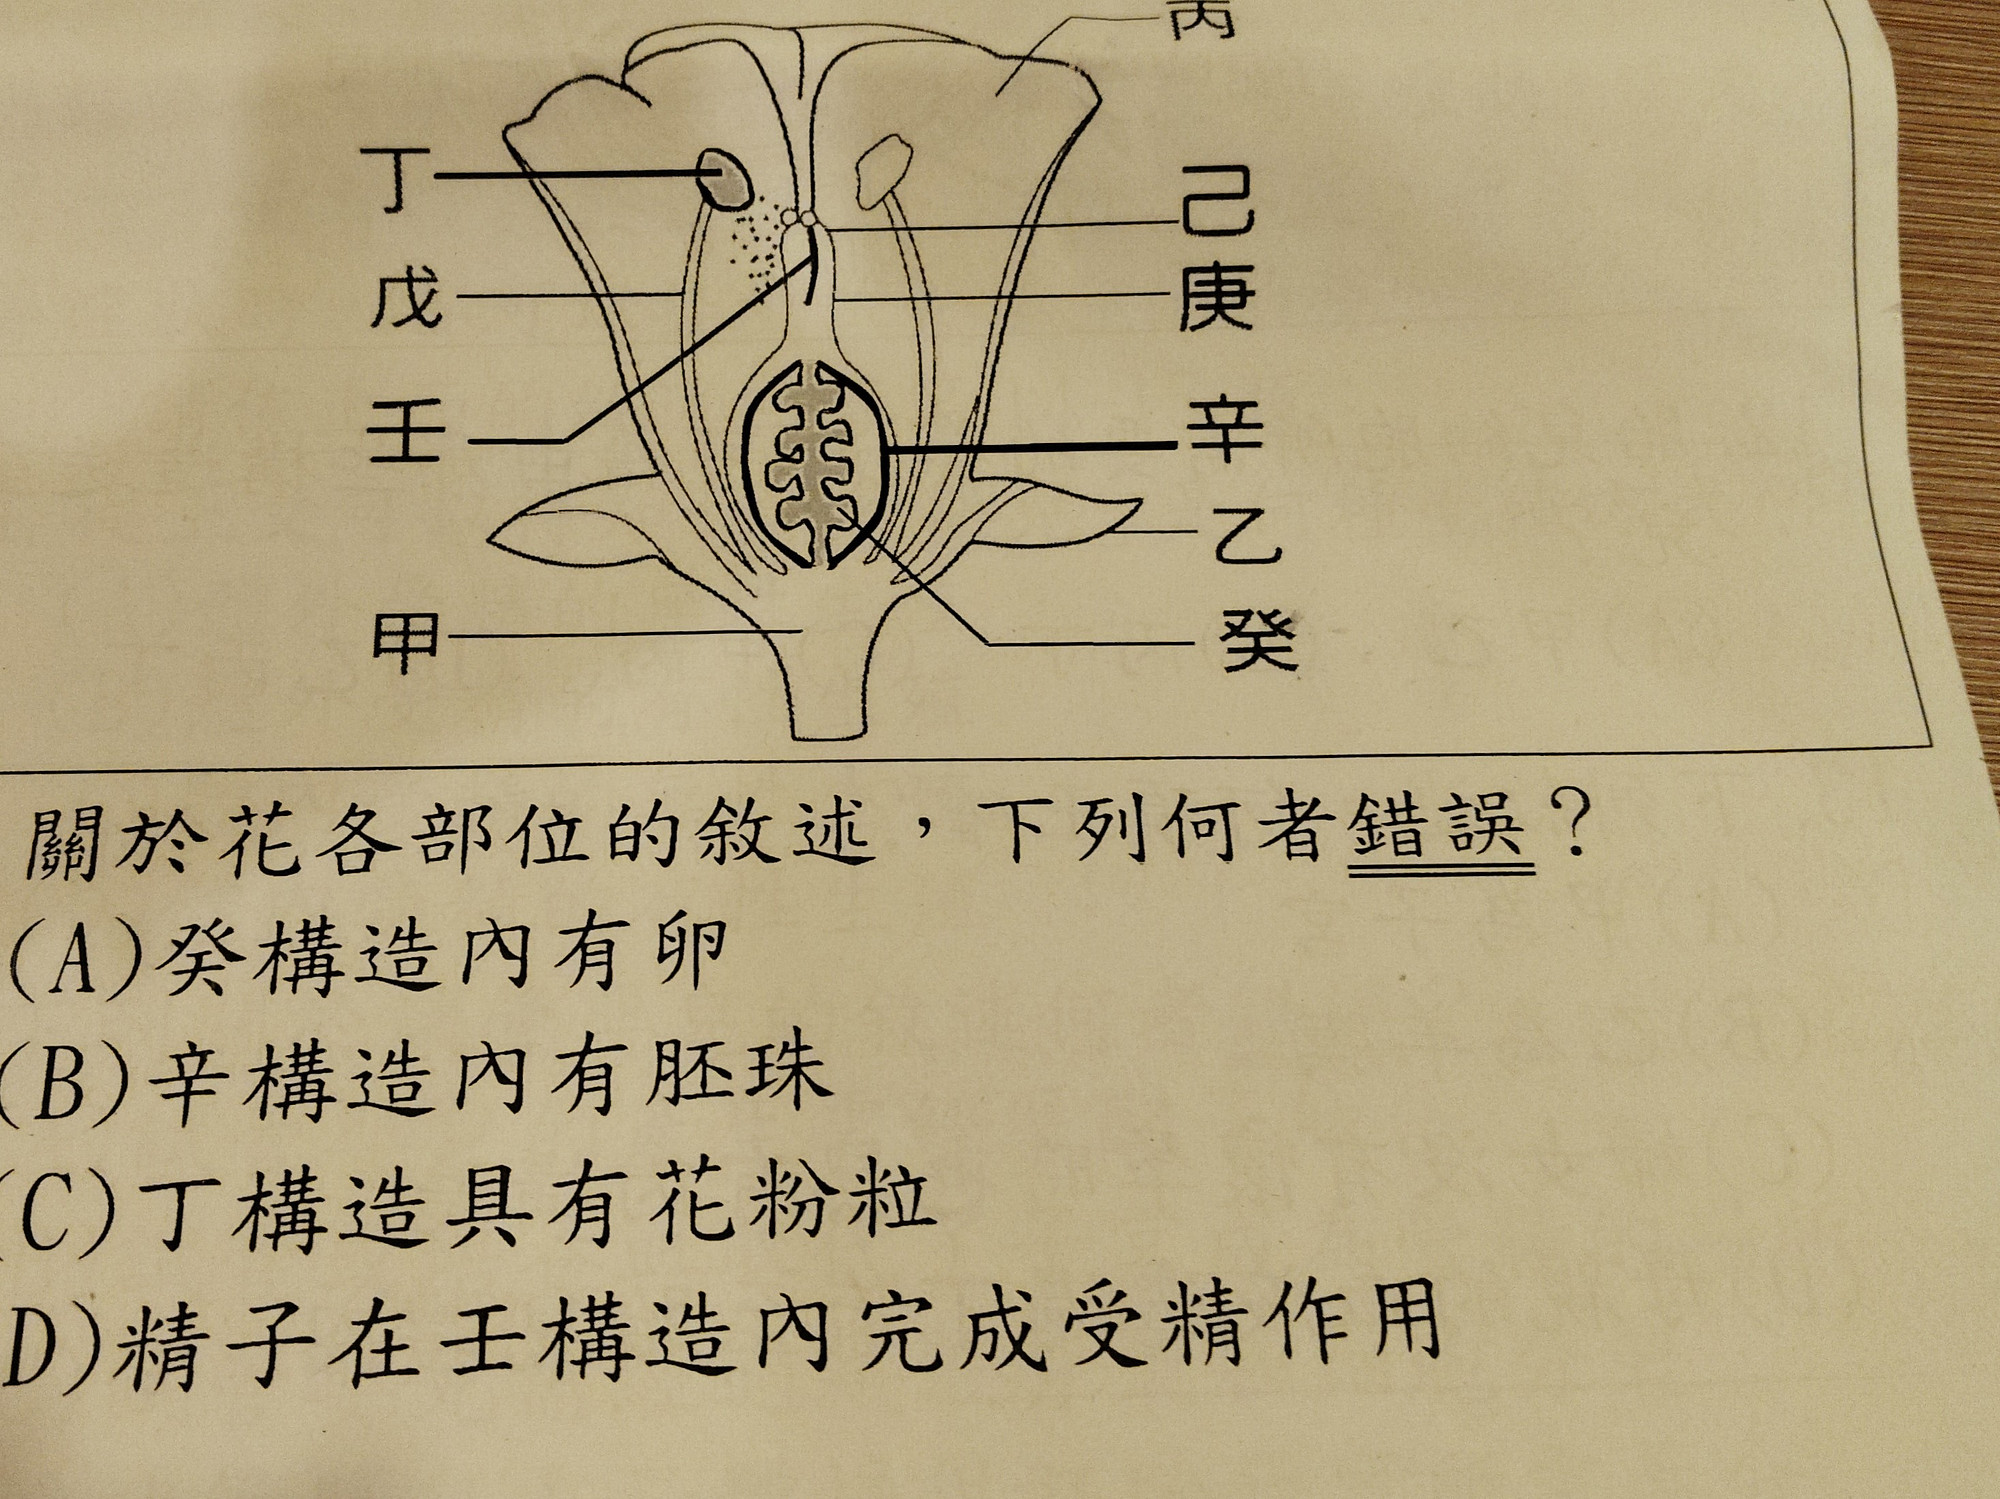 丙
丁
己
戊
庚
壬
辛
乙
甲
癸
關於花各部位的敘述，下列何者錯誤？
(A)癸構造內有卵
(B)辛構造內有胚珠
(C)丁構造具有花粉粒
D)精子在壬構造內完成受精作用